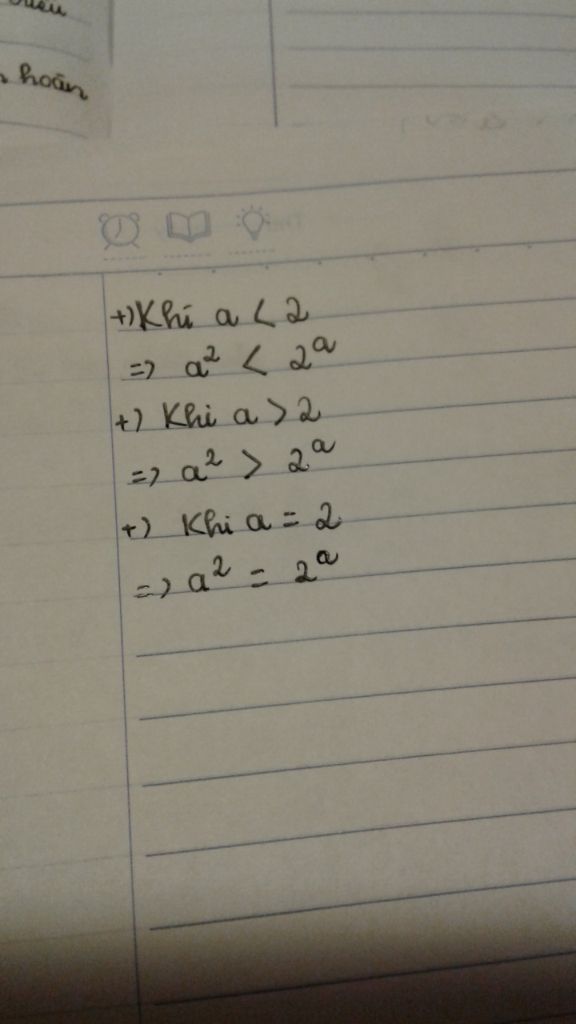 hoãn
+) Khi a < 2
=> a² < 2ᵃ
+) Khi a > 2
=> a² > 2ᵃ
+) Khi a = 2
=> a² = 2ᵃ